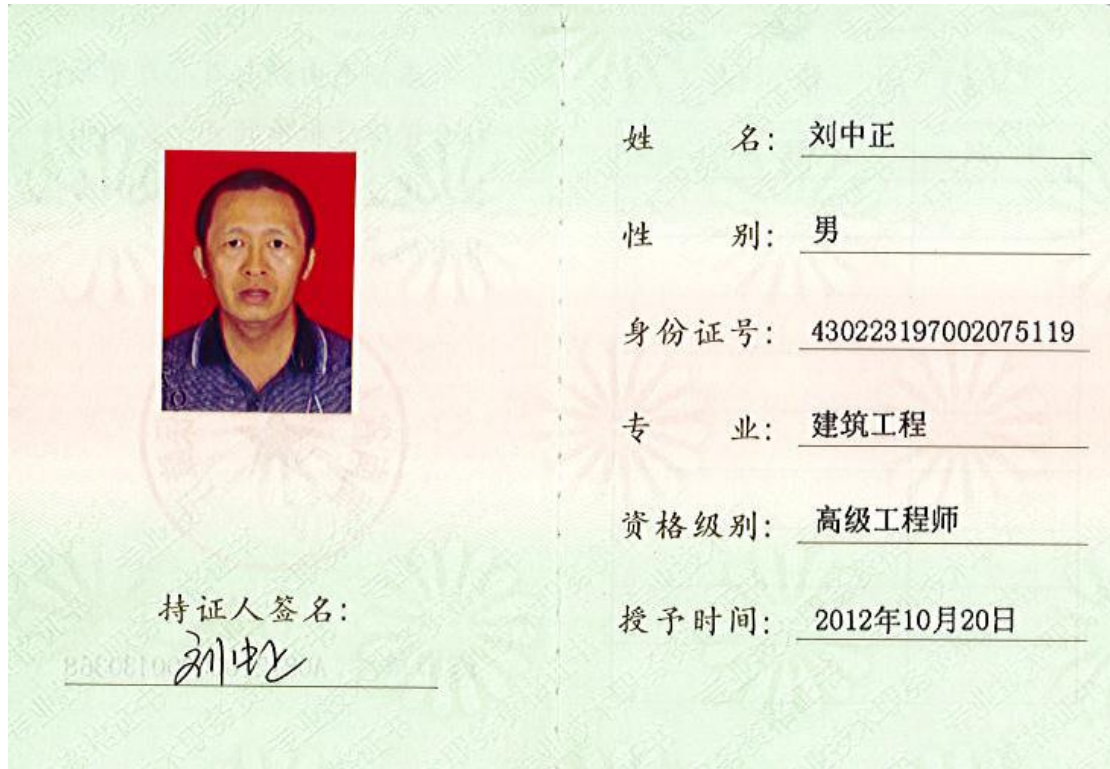 持证人签名:
刘中正
姓 名: 刘中正
性 别: 男
身份证号: 430223197002075119
专 业: 建筑工程
资格级别: 高级工程师
授予时间: 2012年10月20日